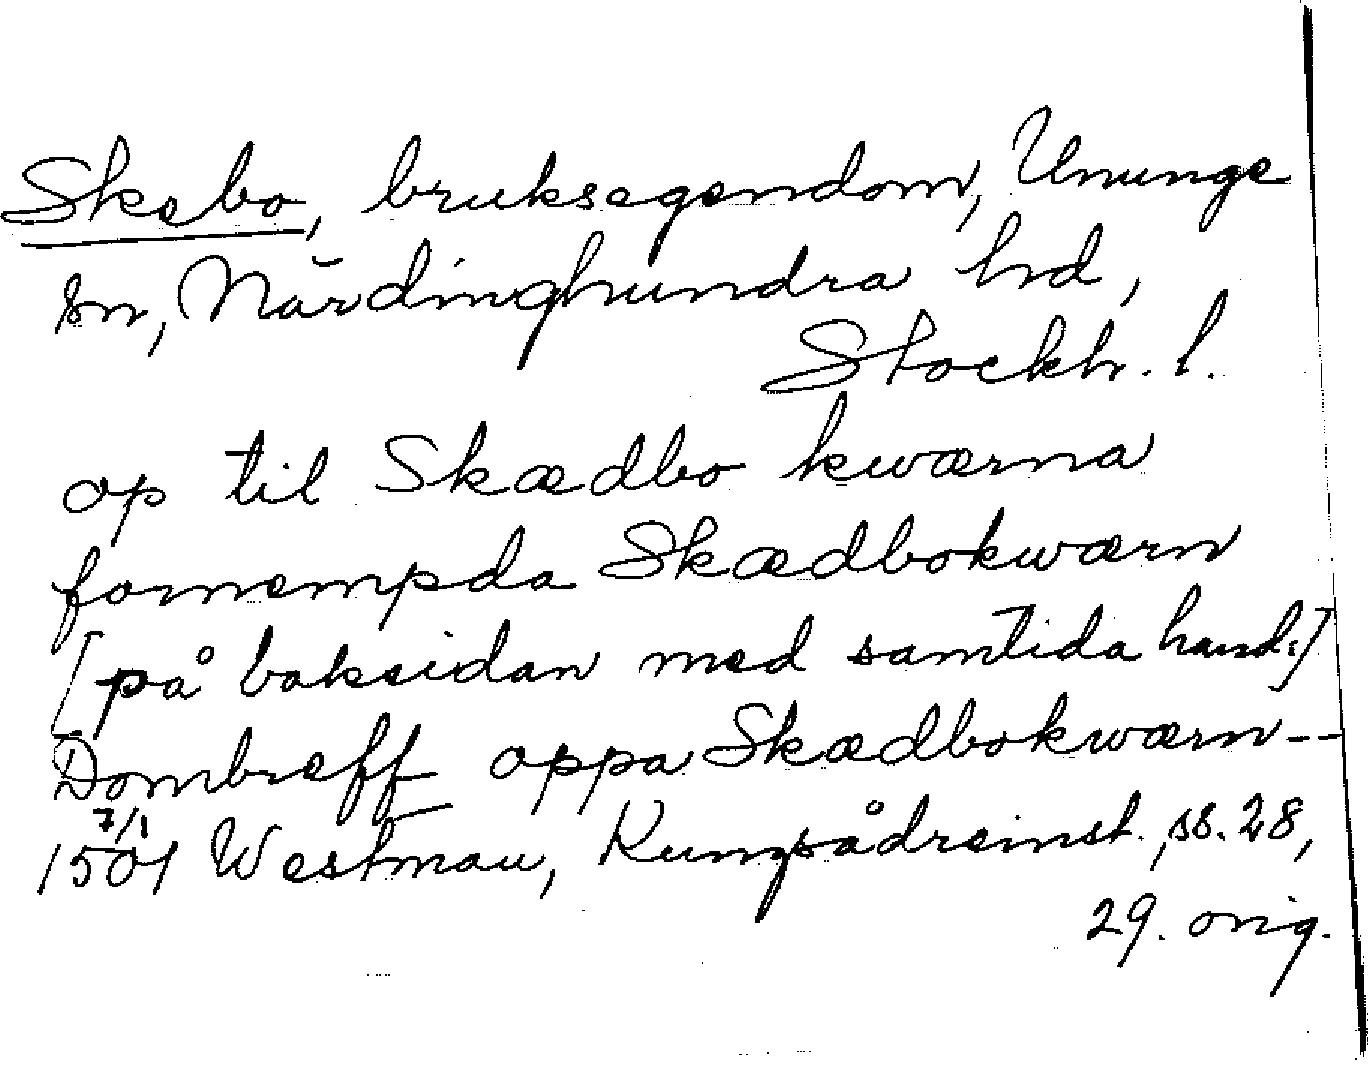 Skebo, bruksegendom, Ununge
sn, Närdinghundra hd,
Stockh. l.
op til Skædbo kwærna
fornempda Skædbokwærn
[på baksidan med samtida hand:]
Dombreff oppa Skædbokwærn--
7/1
1501 Westmau, Kungsådreinst., ss. 28,
29. orig.